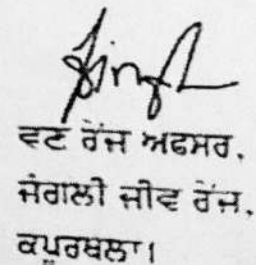 ਵਣ ਰੇਂਜ ਅਫਸਰ,
ਜੰਗਲੀ ਜੀਵ ਰੇਂਜ,
ਕਪੂਰਥਲਾ।